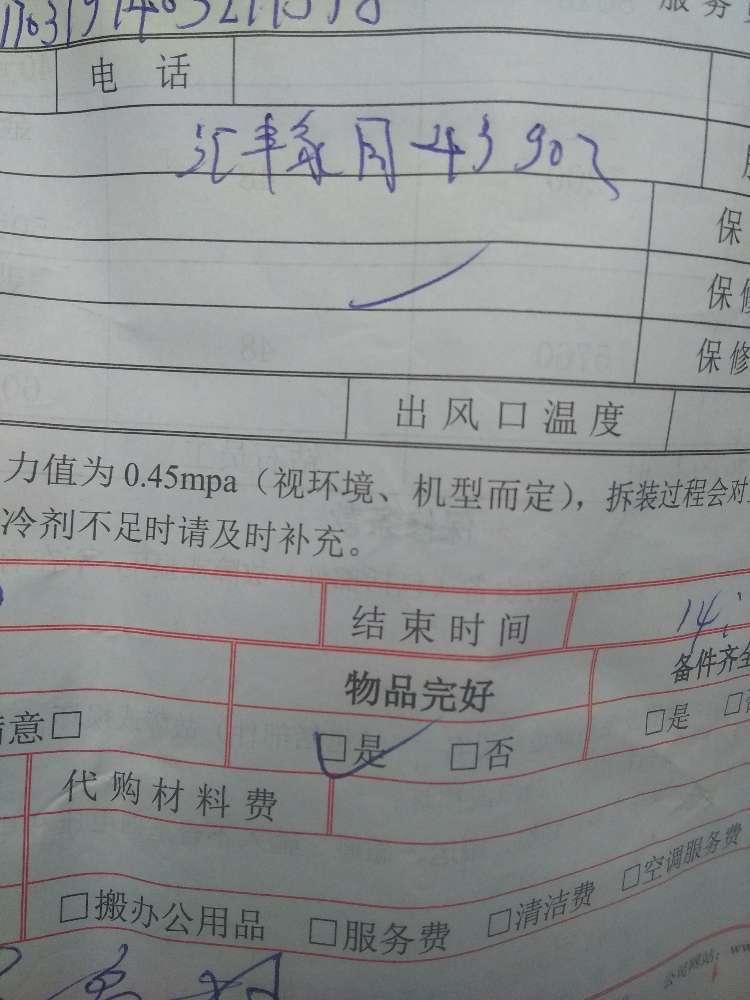 服务
电话
汇丰家园
保
保修
保修
出风口温度
力值为0.45mpa（视环境、机型而定），拆装过程会对
冷剂不足时请及时补充。
结束时间 14:
物品完好 备件齐全
意□ □是 □否 □是 □
代购材料费
□搬办公用品 □服务费 □清洁费 □空调服务费
公司网站：ww